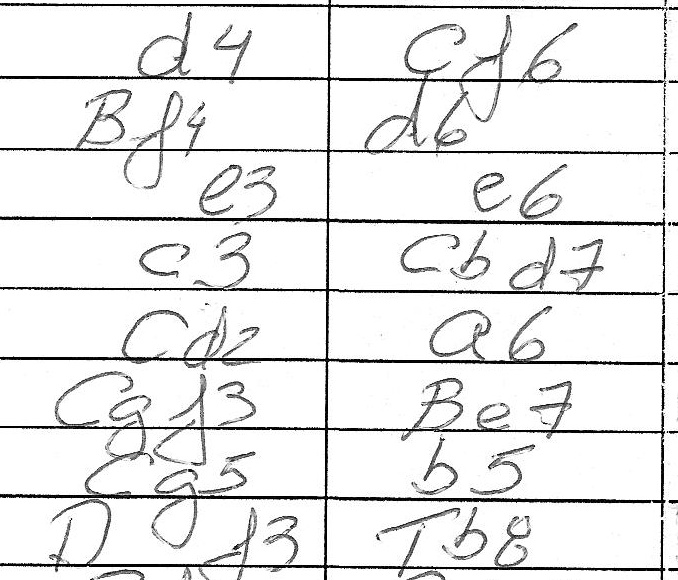 d4 Cf6
Bf4 d6
e3 e6
c3 Cbd7
Cd2 a6
Cgf3 Be7
Cg5 b5
Df3 Tb8